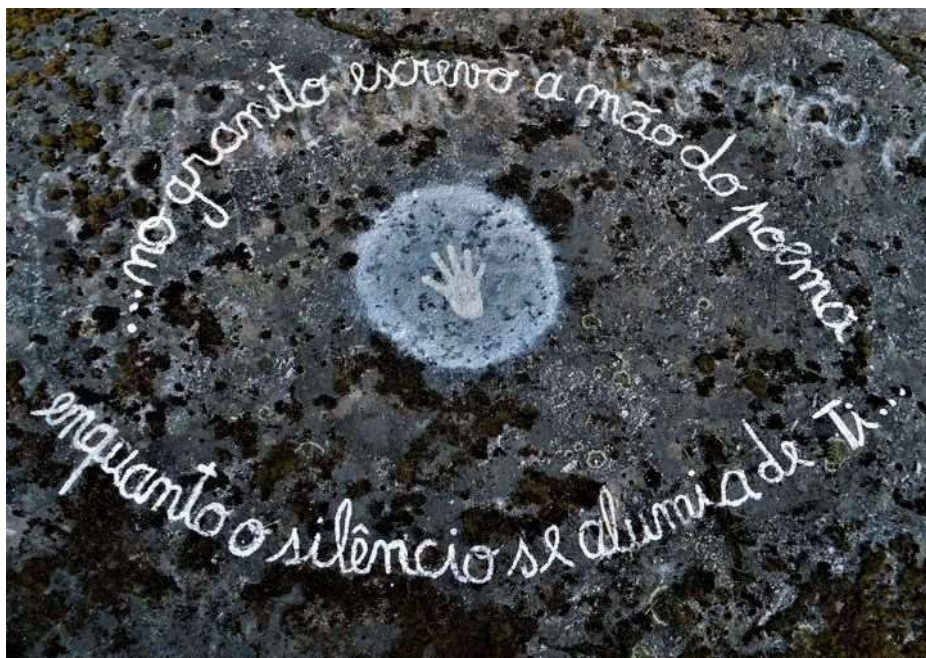 ...no granito escrevo a mão do poema
enquanto o silêncio se alumia de Ti...